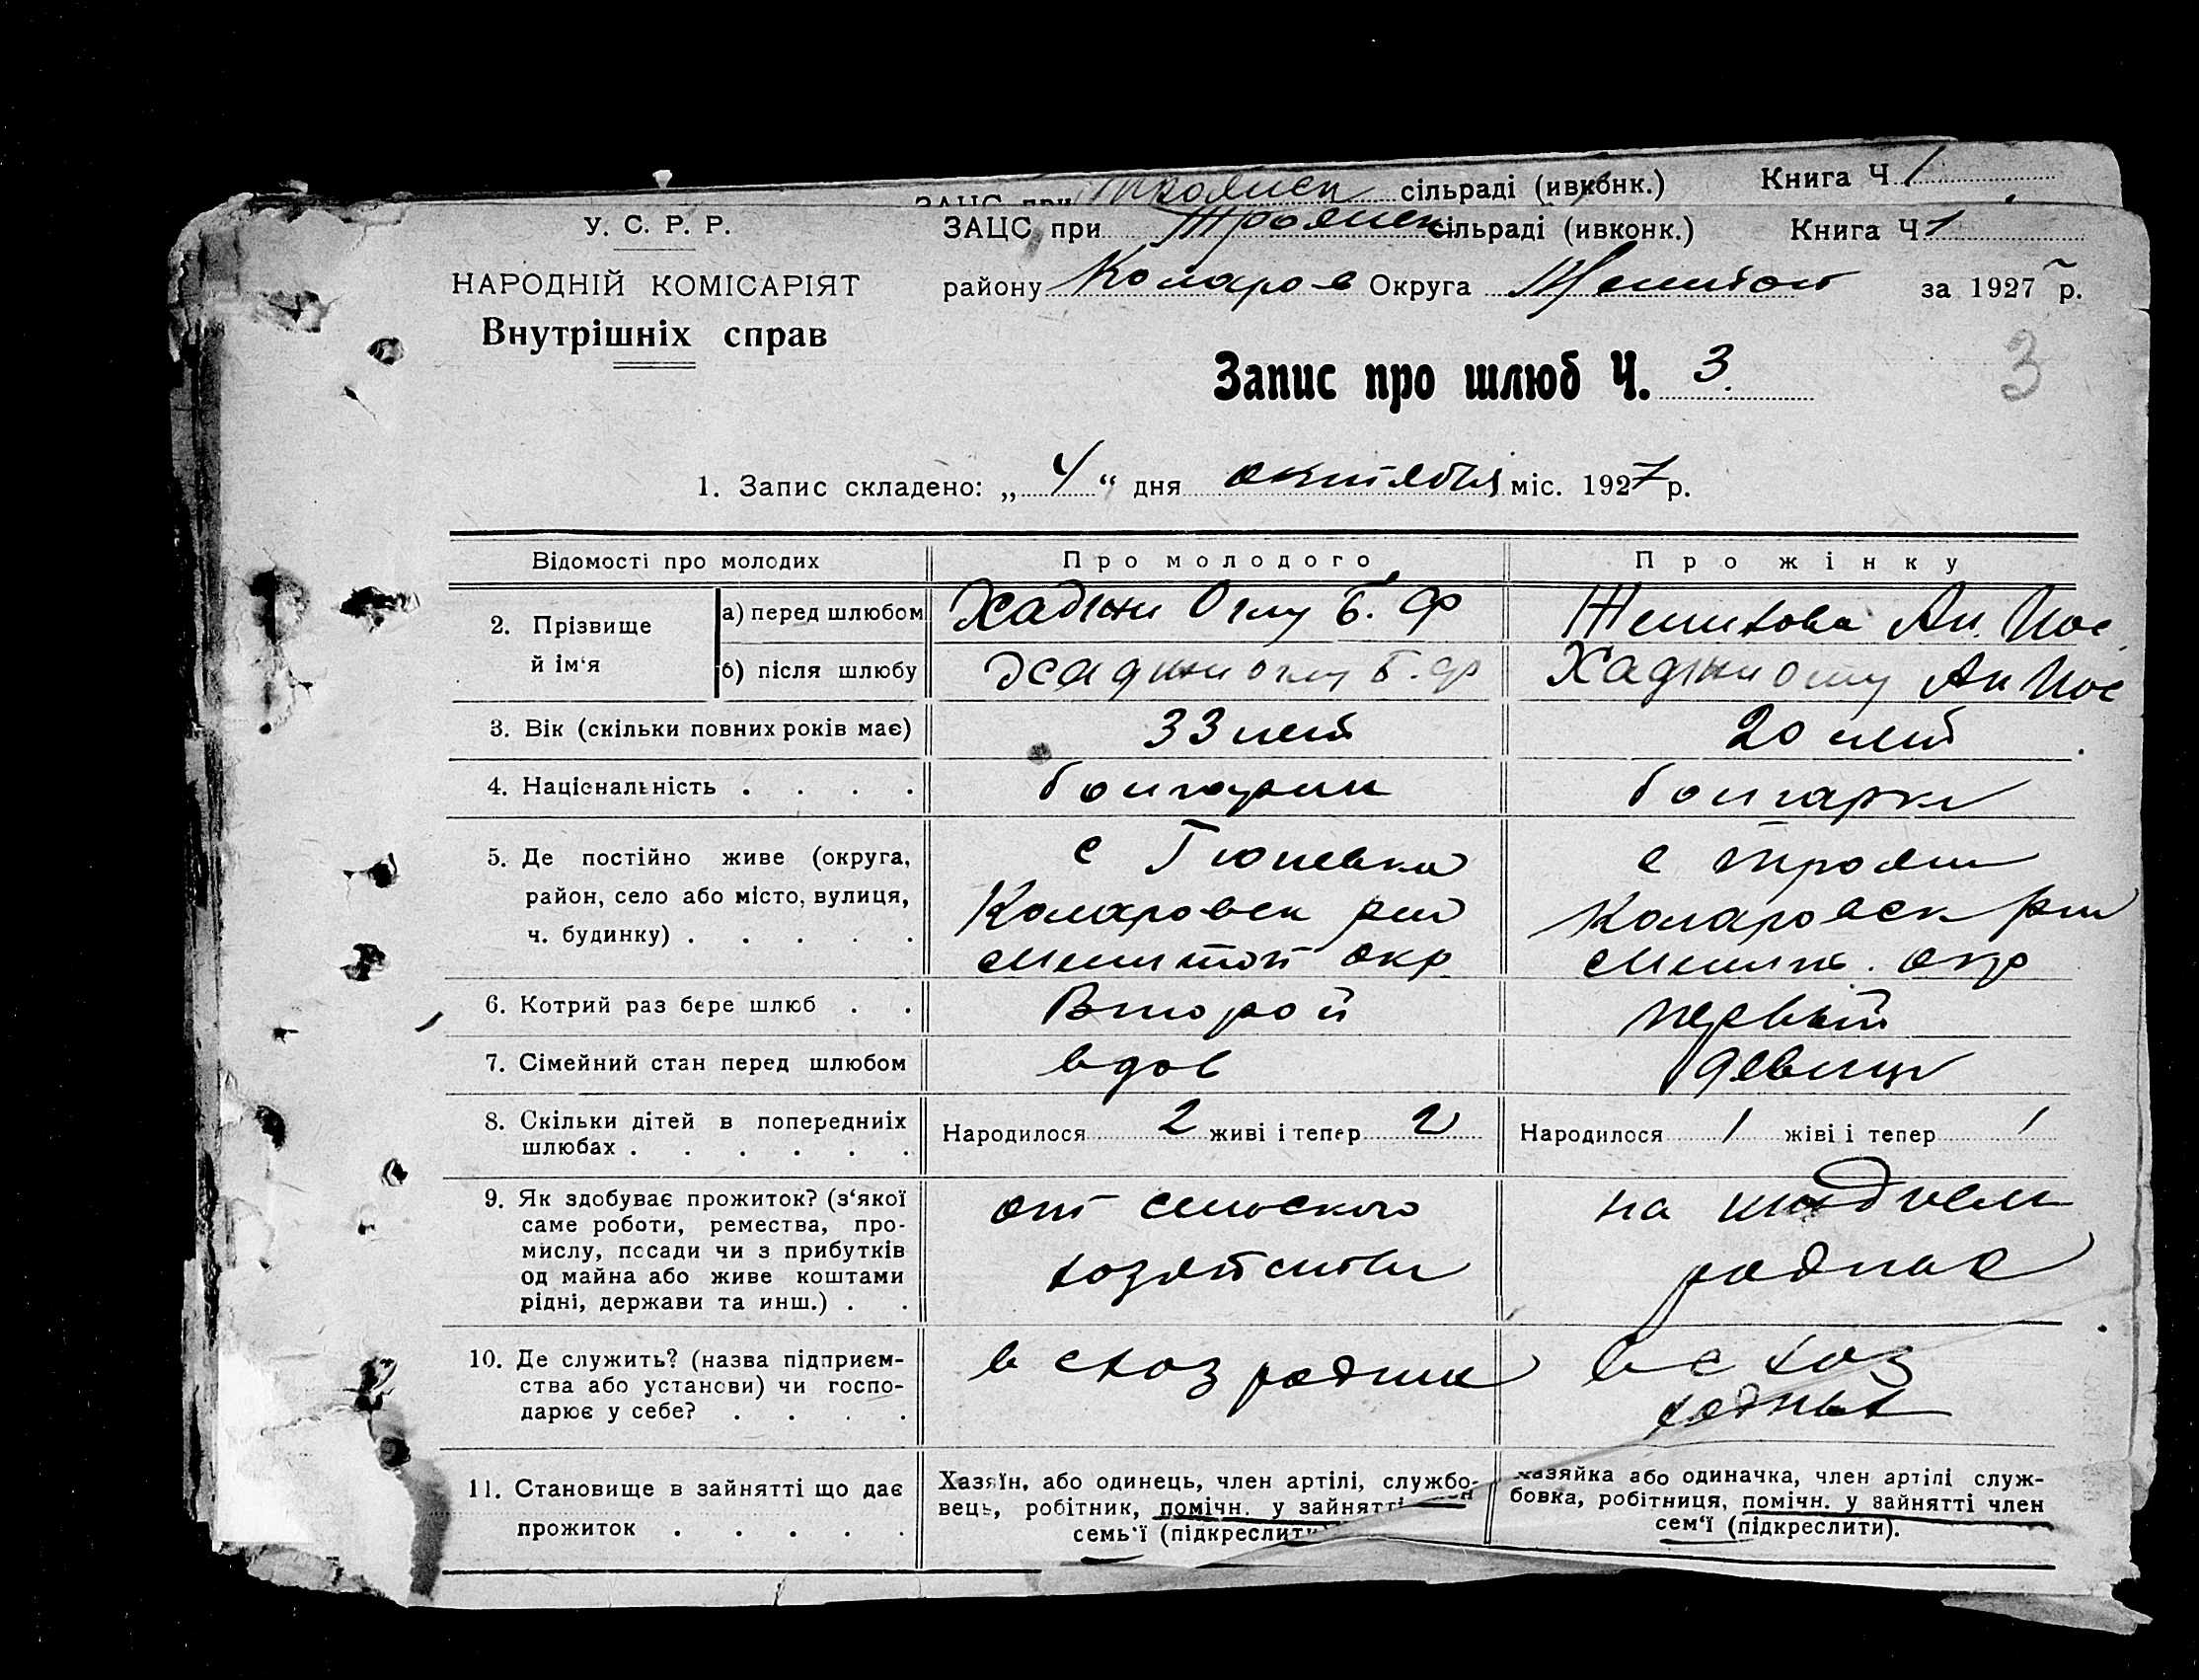 ЗАЦС при Троянск сільраді (ивконк.) Книга Ч 1
У. С. Р. Р.
ЗАЦС при Троянск сільраді (ивконк.) Книга Ч 1
НАРОДНІЙ КОМІСАРІЯТ
району Коларов Округа за 1927 р.
Внутрішніх справ
Запис про шлюб Ч. 3.
3
1. Запис складено: „ 4 “ дня октября міс. 1927 р.
Відомості про молодих
Про молодого
Про жінку
2. Прізвище й ім‘я
а) перед шлюбом
Хаджи Оглу Б. Ф
Желикова Ан. Иос
б) після шлюбу
Хаджи оглу Б. Ф
Хаджи оглу Ан Иос
3. Вік (скільки повних років має)
33 лет
20 лет
4. Національність . . . .
болгарин
болгарка
5. Де постійно живе (округа,
район, село або місто, вулиця,
ч. будинку) . . . . .
с Гюневка
Коларовск р-на
Мелитоп окр
с Троян
Коларовск р-на
Мелит. окр
6. Котрий раз бере шлюб . .
Второй
первый
7. Сімейний стан перед шлюбом
вдов
девица
8. Скільки дітей в попередніх
шлюбах . . . . . .
Народилося 2 живі і тепер 2
Народилося 1 жіві і тепер 1
9. Як здобуває прожиток? (з‘якої
саме роботи, ремества, про-
мислу, посади чи з прибутків
од майна або живе коштами
рідні, держави та инш.) . .
от сельского
хозяйства
на
родных
10. Де служить? (назва підприєм-
ства або установи) чи госпо-
дарює у себе? . . . .
в схоз родных
в с хоз
родных
11. Становище в зайнятті що дає
прожиток . . . . .
Хазяїн, або одинець, член артілі, службо-
вець, робітник, помічн. у зайнятті
семь‘ї (підкреслити)
хазяйка або одиначка, член артілі служ-
бовка, робітниця, помічн. у зайнятті член
сем‘ї (підкреслити).